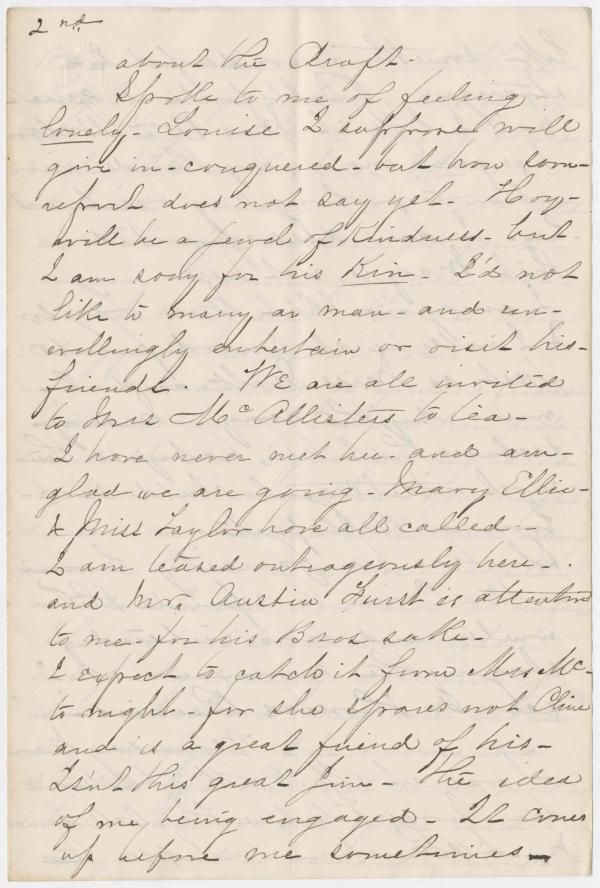 2 nd
about the Draft.
Spoke to me of feeling
lonely - Louise I suppose will
give in - conquered - but how soon -
report does not say yet. Hoy -
will be a jewel of Kindness - but
I am sorry for his Kin - I'd not
like to marry a man - and un-
willingly entertain or visit his -
friends. We are all invited
to Mrs McAllisters to tea -
I have never met her - and am -
glad we are going - Mary Ellie -
& Miss Taylor have all called -
I am teased outrageously here -
and Mr. Austin Furst is attentive
to me - for his Bros sake -
I expect to catch it from Mrs Mc-
to night - for she spares not Cline
and is a great friend of his -
Isn't this great Jim - the idea
of me being engaged - It comes
up before me sometimes -